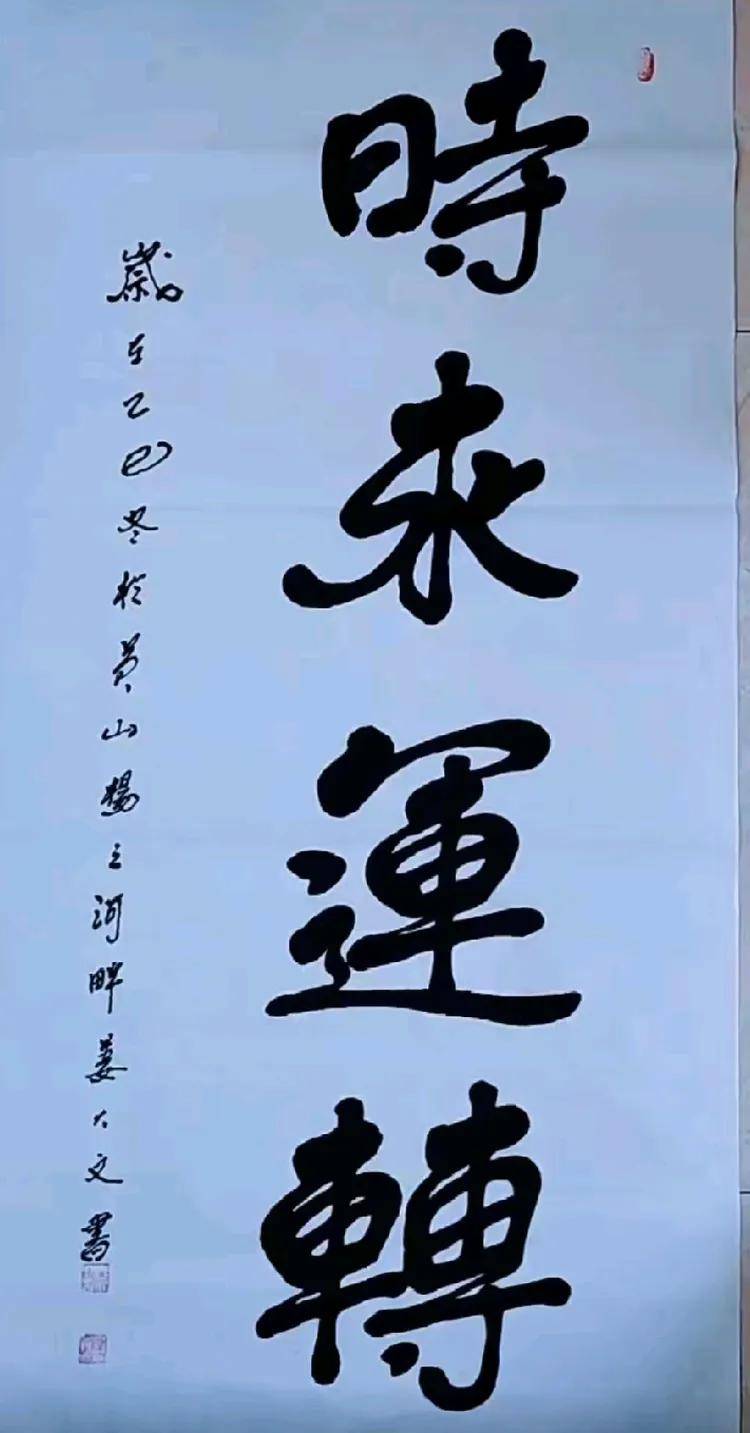 時來運轉
歲在乙巳冬於黄山楊之河畔姜大文書